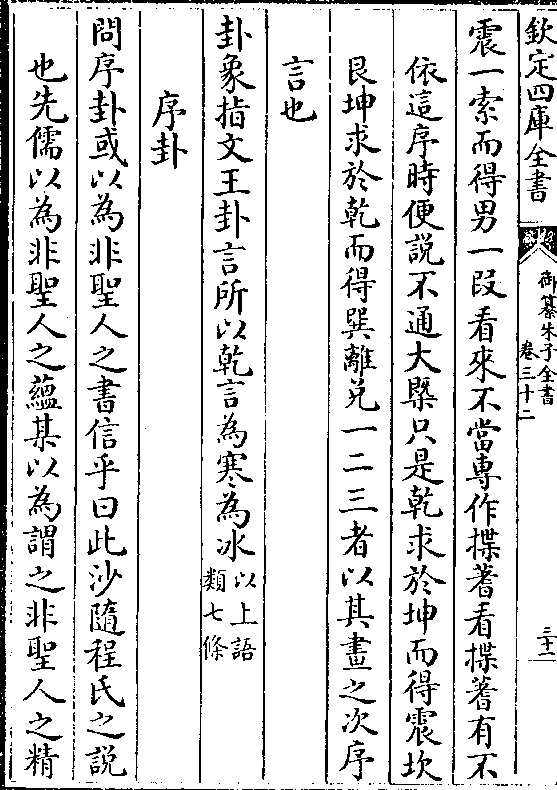 欽定四庫全書
御纂朱子全書
卷三十二
三十二
震一索而得男一段看來不當專作揲蓍看揲蓍有不
依這序時便説不通大槩只是乾求於坤而得震坎
艮坤求於乾而得巽離兌一二三者以其畫之次序
言也
卦象指文王卦言所以乾言為寒為冰以上語
類七條
序卦
問序卦或以為非聖人之書信乎曰此沙隨程氏之説
也先儒以為非聖人之蘊某以為謂之非聖人之精